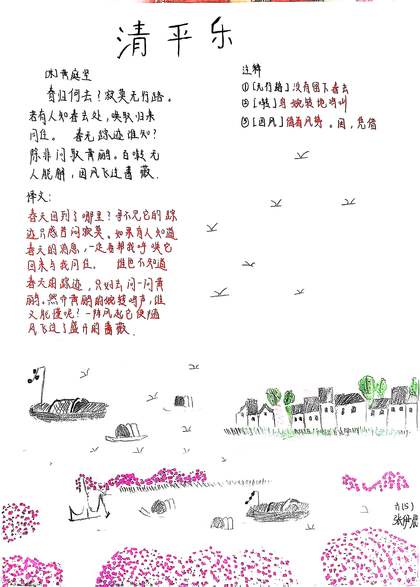 清平乐
[宋]黄庭坚
春归何去？寂莫无行路。
若有人知春去处，唤取归来
同住。 春无踪迹谁知？
除非问取黄鹂。百啭无
人能解，因风飞过蔷薇。
注释
①[无行路]没有留下春去
②[啭]鸟婉转地鸣叫
③[因风]借着风势。因，凭借
译文：
春天回到了哪里？寻不见它的踪
迹只感苦闷寂寞。如果有人知道
春天的消息，一定要帮我呼唤它
回来与我同住。 谁也不知道
春天的踪迹，只好去问一问黄
鹂。然而黄鹂的婉转鸣声，谁
又能懂呢？一阵风起它便随
风飞过了盛开的蔷薇。
六(5)